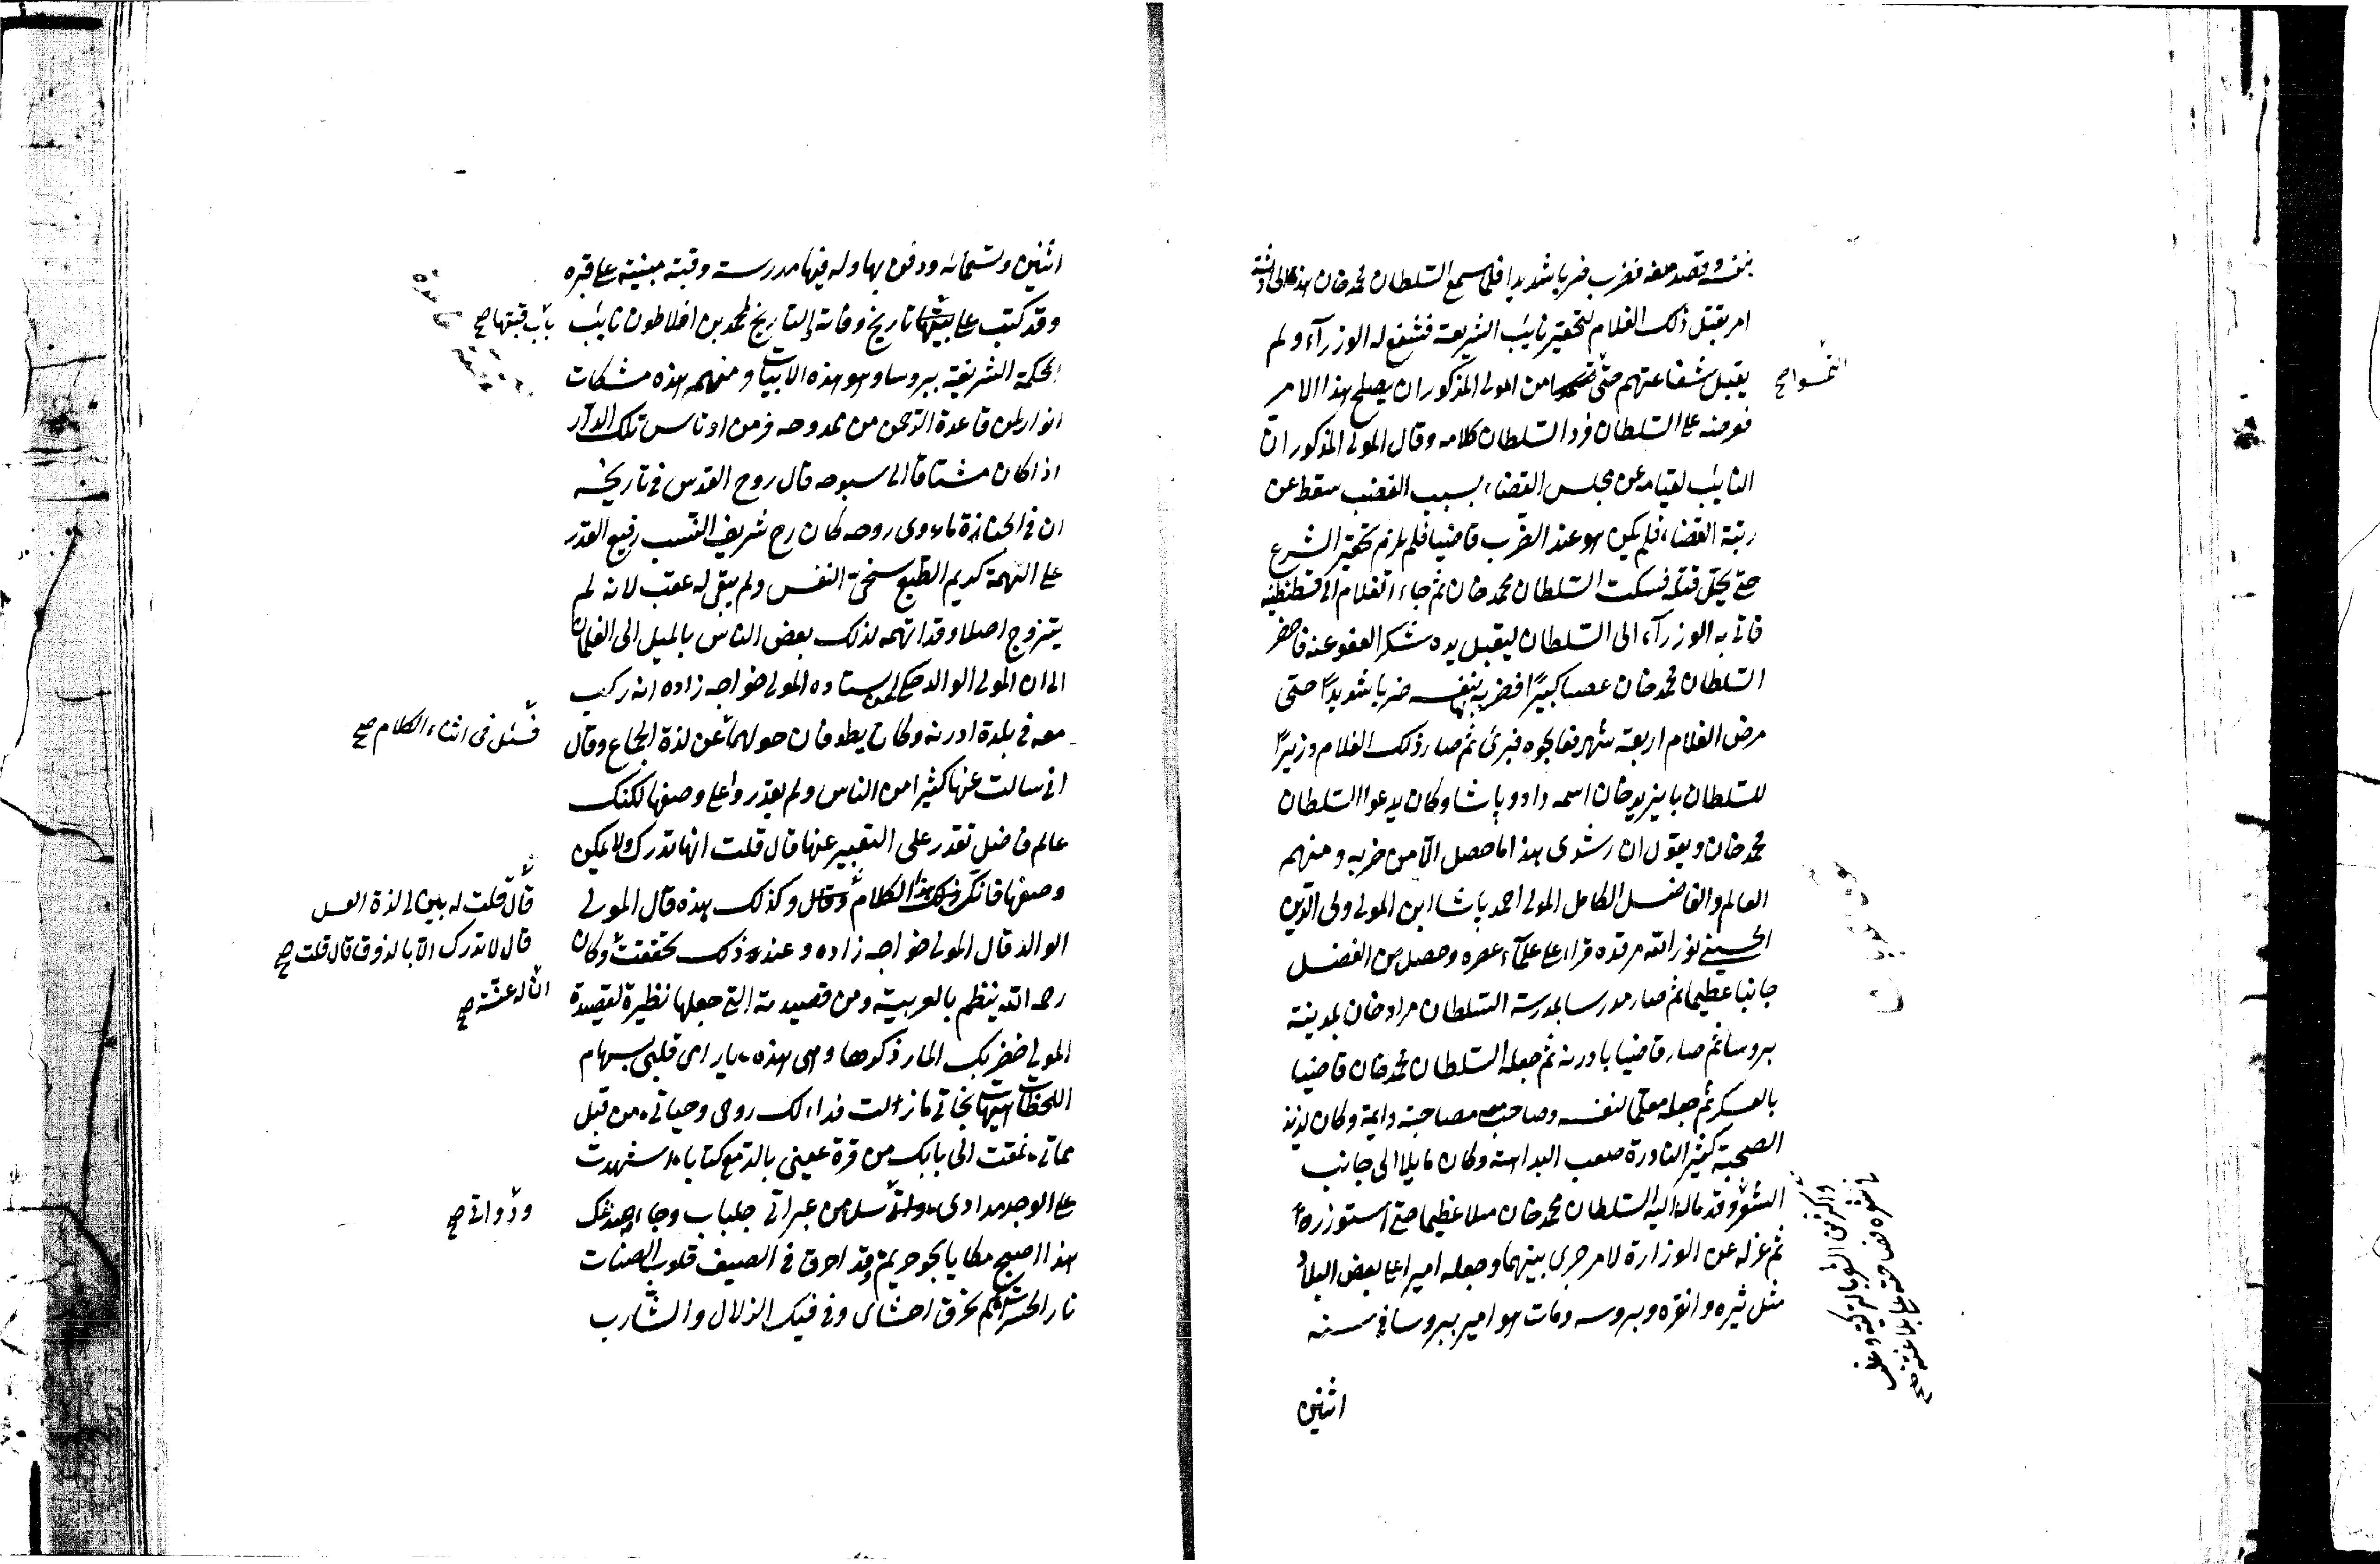 بنفسه وقصد منعه فضرب ضربا شديدا فلما سمع السلطان محمد خان هذا
امر بقتل ذلك الغلام لتحقير نايب الشريعة فشفع له الوزرآء ولم
يقبل شفاعتهم حتى التمسوا من المولى المذكور ان يصلح هذا الامر
فعرضه على السلطان فرد السلطان كلامه وقال المولى المذكور ان
النايب لقيامه عن مجلس القضاء بسبب الغضب سقط عن
رتبة القضاء فلم يكن هو عند الضرب قاضيا فلم يلزم تحقير الشرع
حتى يحل قتله فسكت السلطان محمد خان ثم جاء الغلام الى قسطنطنيه
فاتى به الوزرآء الى السلطان ليقبل يده شكر العفو عنه فاحضر
السلطان محمد خان عصا كبيرًا فضربه بنفسه ضربا شديدًا حتى
مرض الغلام اربعة شهر فعالجوه فبرئ ثم صار ذلك الغلام وزيرًا
للسلطان بايزيد خان اسمه داود پاشا وكان يدعو السلطان
محمد خان ويقول ان رشدى هذا ما حصل الا من ضربه ومنهم
العالم والفاضل الكامل المولى احمد پاشا ابن المولى ولى الدين
الحسينى نور الله مرقده قراء على علمآء عصره وحصل من الفضل
جانبا عظيما ثم صار مدرسا بمدرسة السلطان مراد خان بمدينة
بروسا ثم صار قاضيا بادرنه ثم جعله السلطان محمد خان قاضيا
بالعسكر ثم جعله معلما لنفسه وصاحب معه مصاحبة دايمة وكان لذيذ
الصحبة كثير النادرة صعب البداهة وكان مايلا الى جانب
الشعر وقد مال اليه السلطان محمد خان ميلا عظيما حتى استوزره
ثم عزله عن الوزارة لامر جرى بينهما وجعله اميرا على بعض البلاد
مثل تيره وانقره وبروسه ومات هو امير ببروسا فى سنه
اثنين
التمسوا صح
اثنين وتسعمائه ودفن بها وله فيها مدرسة وقبة مبنية على قبره
وقد كتب على تاريخ وفاته التاريخ لمحمد بن افلاطون نايب
باب قبتها صح
المحكمة الشريفة ببروسا وهو هذه الابيات ومنهم هذه مشكات
انوار لمن قاعدة الرحمن من ممدوحه فر من اوناس تلك الدآر
اذا كان مشتاقا الى سبوحه قال روح القدس فى تاريخه
ان فى الجنازة ماءوى روحه كان رح شريف النسب رفيع القدر
على الهمة كريم الطبع سخى النفس ولم يبق له عقب لانه لم
يتزوج اصلا وقد اتهمه لذلك بعض الناس بالميل الى الغلمان
الا ان المولى الوالد حكى عن استاده المولى خواجه زاده انه ركب
معه فى بلدة ادرنه وكان يطوفان حولها عن لذة الجماع وقال
فسئل فى اثناء الكلام صح
انى سالت عنها كثيرا من الناس ولم يقدروا على وصفها لكنك
عالم فاضل تقدر على التعبير عنها قال قلت انها تدرك ولا يمكن
وصفها فانكر هذا الكلام وكذلك هذه قال المولى
قال قلت له بين لى لذة العسل
الوالد قال المولى خواجه زاده وعند ذلك تحققت وكان
قال لا تدرك الا بالذوق قال قلت صح
ان له عنة صح
رحمه الله ينظم بالعربية ومن قصيدته التى جعلها نظيرة لقصيدة
المولى خضر بك المار ذكرها وهى هذه يا رامى قلبى بسهام
اللحظات هيهات نجاتى ما زالت فداء لك روحى وحياتى من قبل
مماتى نمقت الى بابك من قرة عينى بالدمع كتابا شهدت
على الوجد مدادى سل من عبراتى جلباب وجاء صدغك
ودواتى صح
هذا اصبح وقد احرق فى الصيف قلوب
نار الحسرات كم تحرق احشاى وفى فيك الزلال والشارب